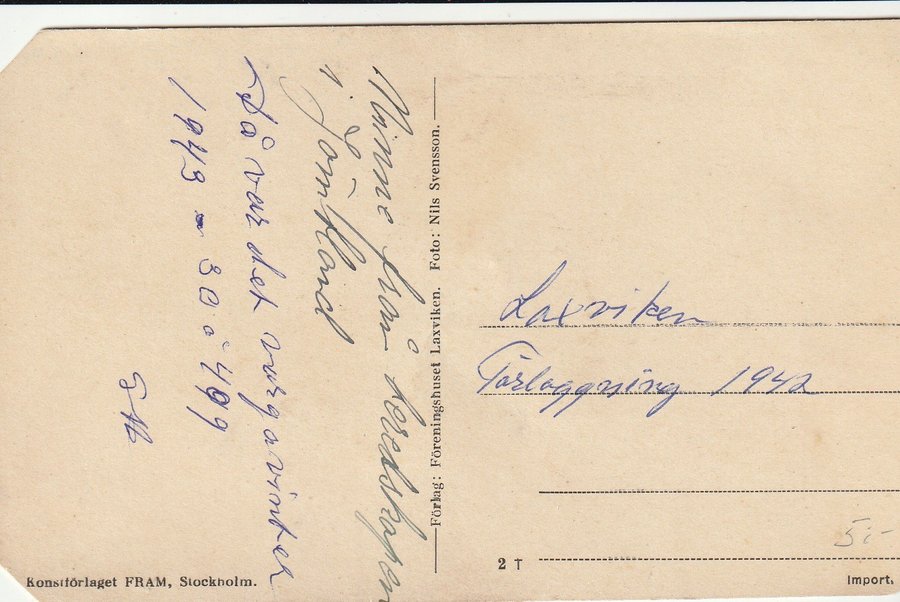 Minne från beredskapen
i Jämtland
Då var det vargavinter
1943 - 30 à 499
Förlag: Föreningshuset Laxviken. Foto: Nils Svensson.
Laxviken
Förläggning 1942
5:-
2 T
Konstförlaget FRAM, Stockholm.
Import.